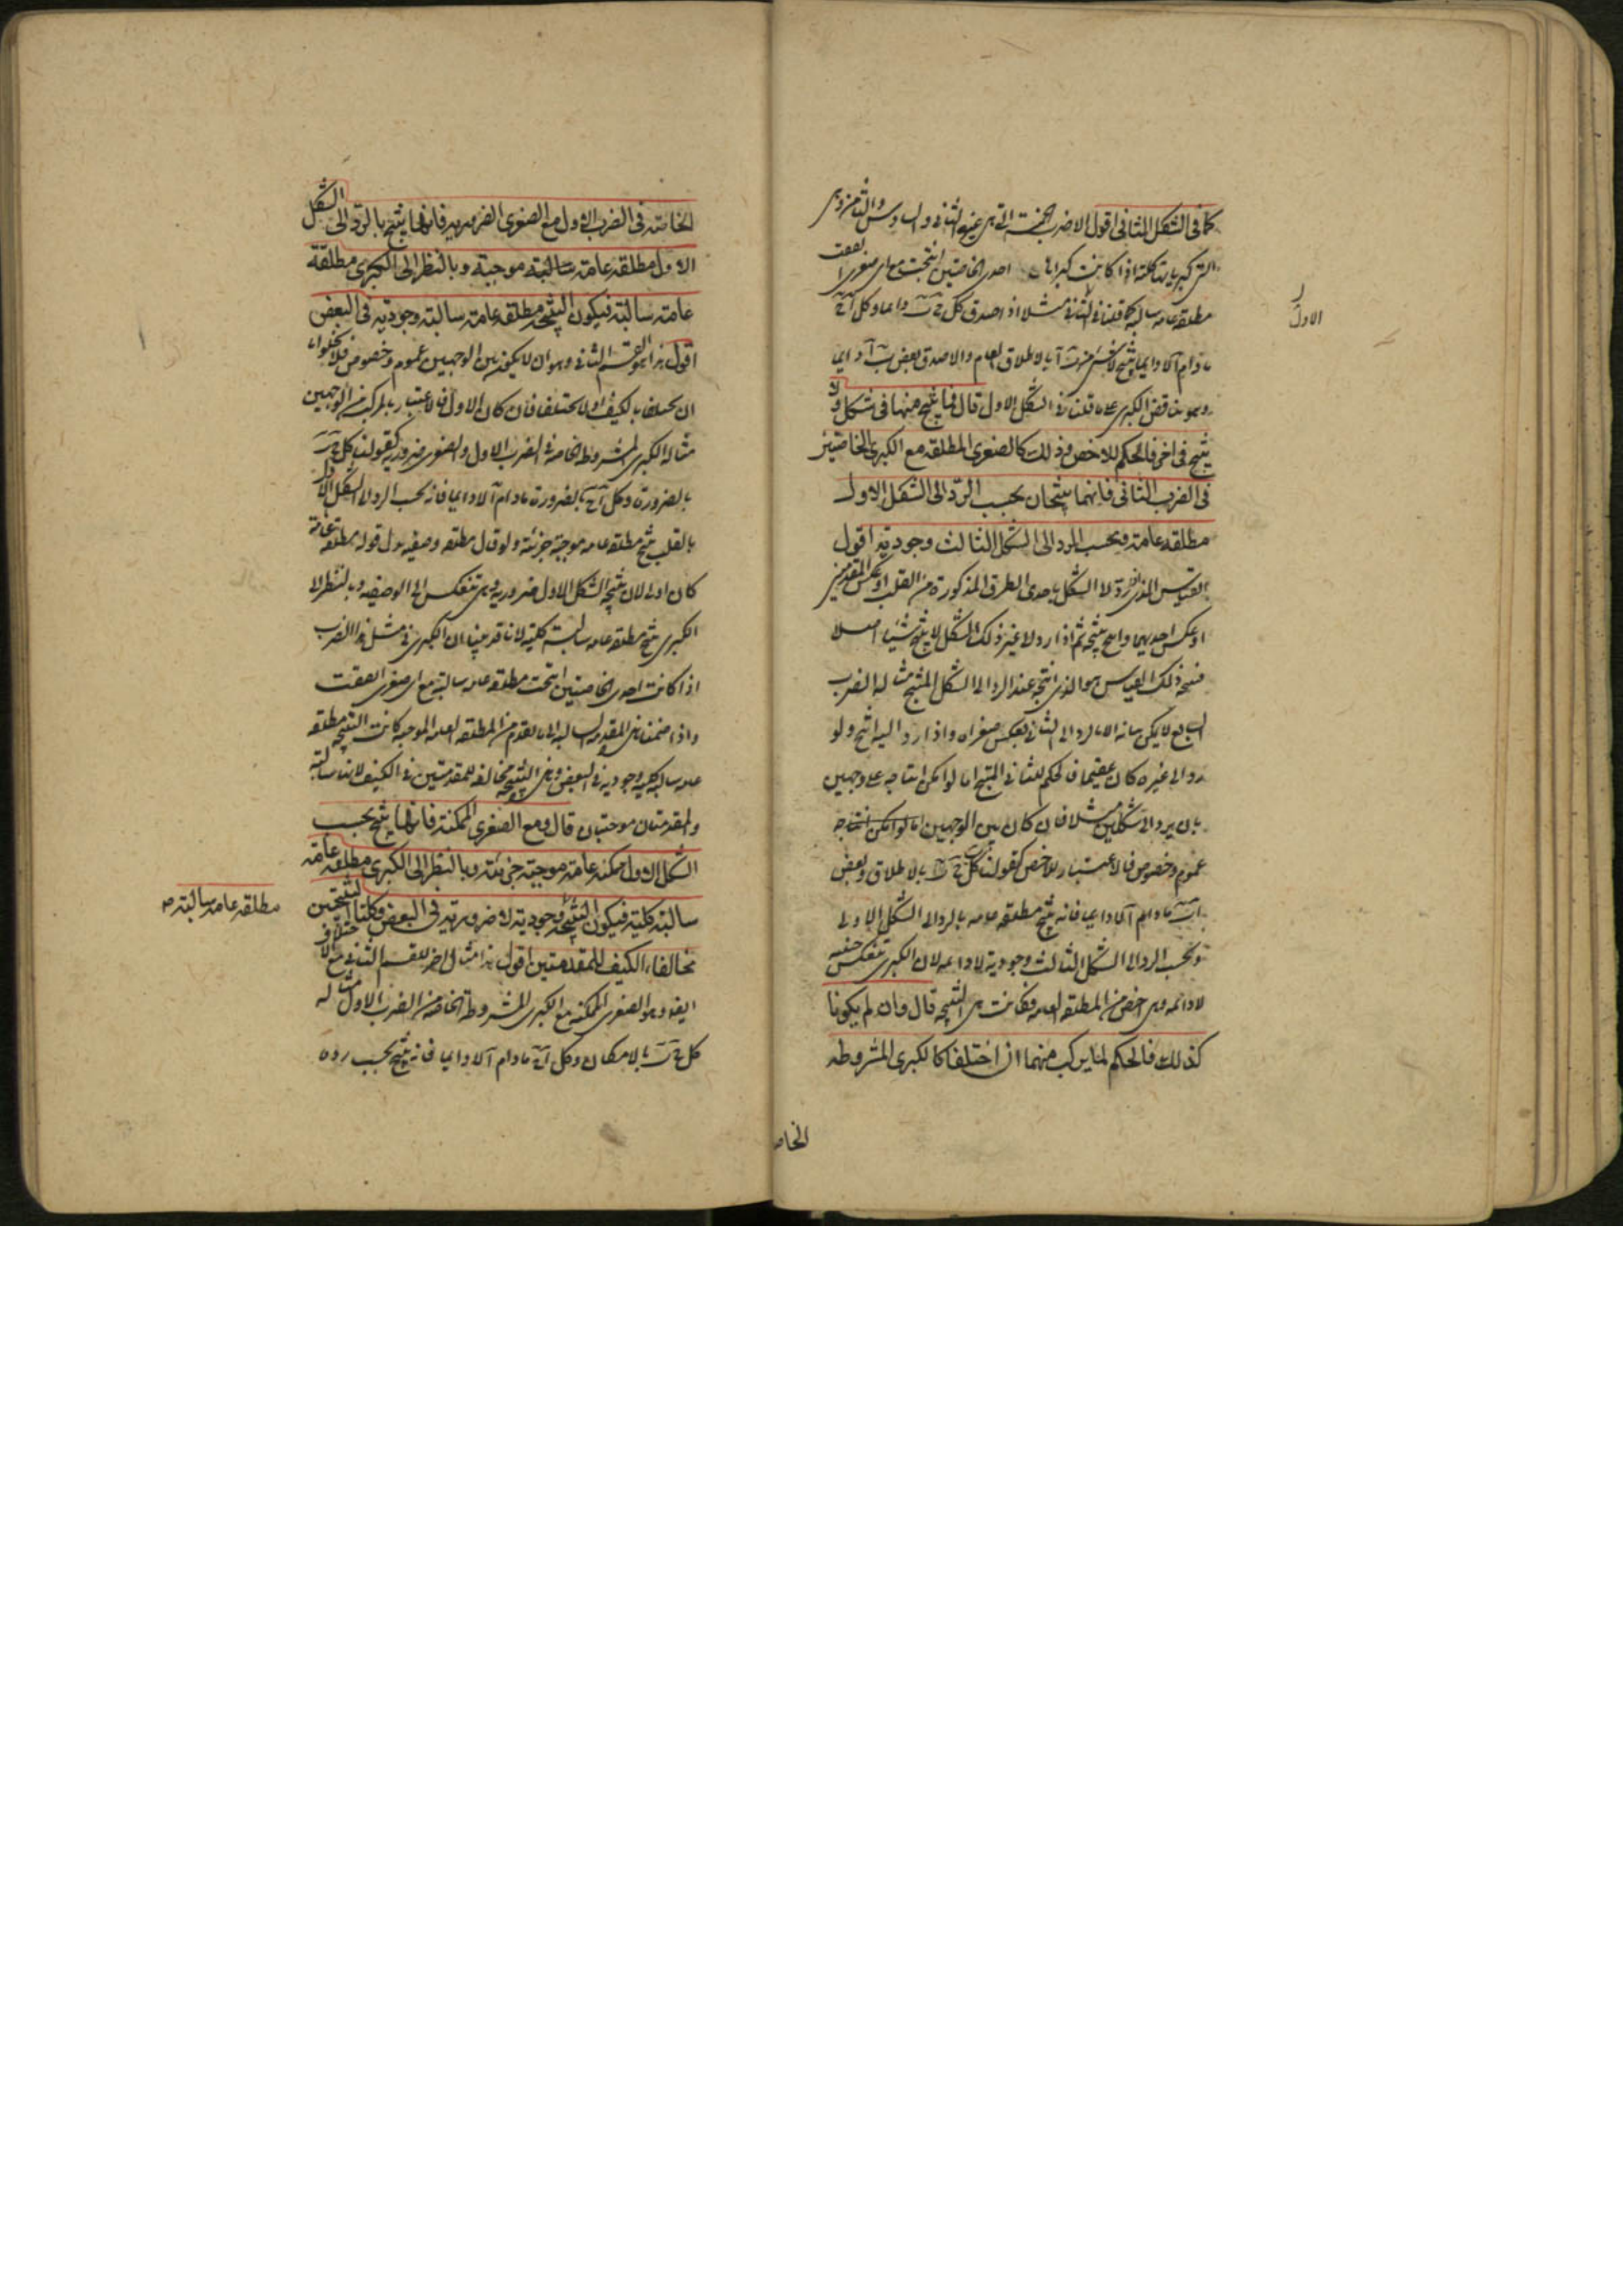 كما في الشكل الثاني اقول الاضرب الخمسة التي هي غير الثاني والسادس والثامن وهي
التي كبرياتها كلية اذا كانت كبراها احدى الخاصتين انتجت مع اي صغرى اتفقت
مطلقه عامه سالبه كما قلنا في الثاني مثلا اذا صدق كل ج ب دايما وكل آ ج
مادام آ لا دايما ينتج لا شي من ب آ بالاطلاق العام والا صدق بعض ب آ دايما
وهو يناقض الكبرى على ما قلنا في الشكل الاول قال فما ينتج منها في شكل ولا
ينتج في اخر فالحكم للاخص وذلك كالصغرى المطلقه مع الكبرى الخاصتين
في الضرب الثاني فانهما ينتجان بحسب الرد الى الشكل الاول
مطلقه عامة وبحسب الرد الى الشكل الثالث وجودية اقول
القياس الذي رد لا الشكل باحدى الطرق المذكورة من القلب او عكس المقدمتين
او عكس احديهما وانتج نتيجه ثم اذا رد لا غير ذلك الشكل لا ينتج شيئا اصلا
فنتيجه ذلك القياس هو الذي انتجه عند الرد الى الشكل المنتج مثاله الضرب
السابع لا يمكن بيانه الا بالرد الى الثاني بعكس صغراه واذا رد اليه انتج ولو
رد الى غيره كان عقيما فالحكم للثاني المنتج اما لو امكن انتاجه على وجهين
بان يرد الى شكلين مثلا فان كان بين الوجهين اما لو امكن انتاجه
عموم وخصوص فالاعتبار للاخص كقولنا كل ج ب بالاطلاق وبعض
آ ج مادام آ لا دايما فانه ينتج مطلقه عامه بالرد الى الشكل الاول
وبحسب الرد الى الشكل الثالث وجودية لا دايمه لان الكبرى تنعكس حينيه
لا دائمه وهي اخص من المطلقه العامه فكانت هي النتيجه قال وان لم يكونا
كذلك فالحكم لما يركب منهما ان اختلفا كالكبرى المشروطه
الاول
الخاصه
الخاصة في الضرب الاول مع الصغرى الضروريه فانها ينتج بالرد الى الشكل
الاول مطلقه عامة سالبة موجبة وبالنظر الى الكبرى مطلقة
عامة سالبة فيكون النتيجة مطلقه عامة سالبة وجودية في البعض
اقول هذا هو القسم الثاني وهو ان لا يكون بين الوجهين عموم وخصوص فلا يخلوا
ان يختلفا بالكيف او لا يختلفا فان كان الاول فالاعتبار بالمركب من الوجهين
مثاله الكبرى المشروطه الخاصه في الضرب الاول والصغرى ضروريه كقولنا كل ج ب
بالضرورة وكل آ ج بالضرورة مادام آ لا دايما فانه بحسب الرد الى الشكل الاول
بالقلب ينتج مطلقه عامه موجبة جزئية ولو قال مطلقه وصفيه بدل قوله مطلقه عامة
كان اولى لان نتيجه الشكل الاول ضروريه وهي تنعكس الى الوصفيه وبالنظر الى
الكبرى ينتج مطلقه عامه سالبة كلية لانا قد بينا ان الكبرى في مثل هذا الضرب
اذا كانت احدى الخاصيتين انتجت مطلقه عامه سالبة مع اي صغرى اتفقت
واذا ضممنا هذه المقدمه السالبه الى ما تقدم من المطلقه العامه الموجبه كانت النتيجه مطلقه
عامه سالبه كليه وجوديه في البعض وهي النتيجه مخالفه للمقدمتين في الكيف لانها سالبة
والمقدمتان موجبتان قال ومع الصغرى الممكنة فانها ينتج بحسب
الشكل الاول ممكنة عامة موجبة جزئية وبالنظر الى الكبرى مطلقه عامة
سالبة كلية فيكون النتيجة وجودية لا ضرورية في البعض وكلتا النتيجتين
مخالفا الكيف للمقدمتين اقول هذا مثال اخر للقسم الثاني مع الاختلاف
ايضا وهو الصغرى الممكنه مع الكبرى المشروطة الخاصه من الضرب الاول مثاله
كل ج ب بالامكان وكل آ ج مادام آ لا دايما فانه ينتج بحسب رده
مطلقه عامه سالبة